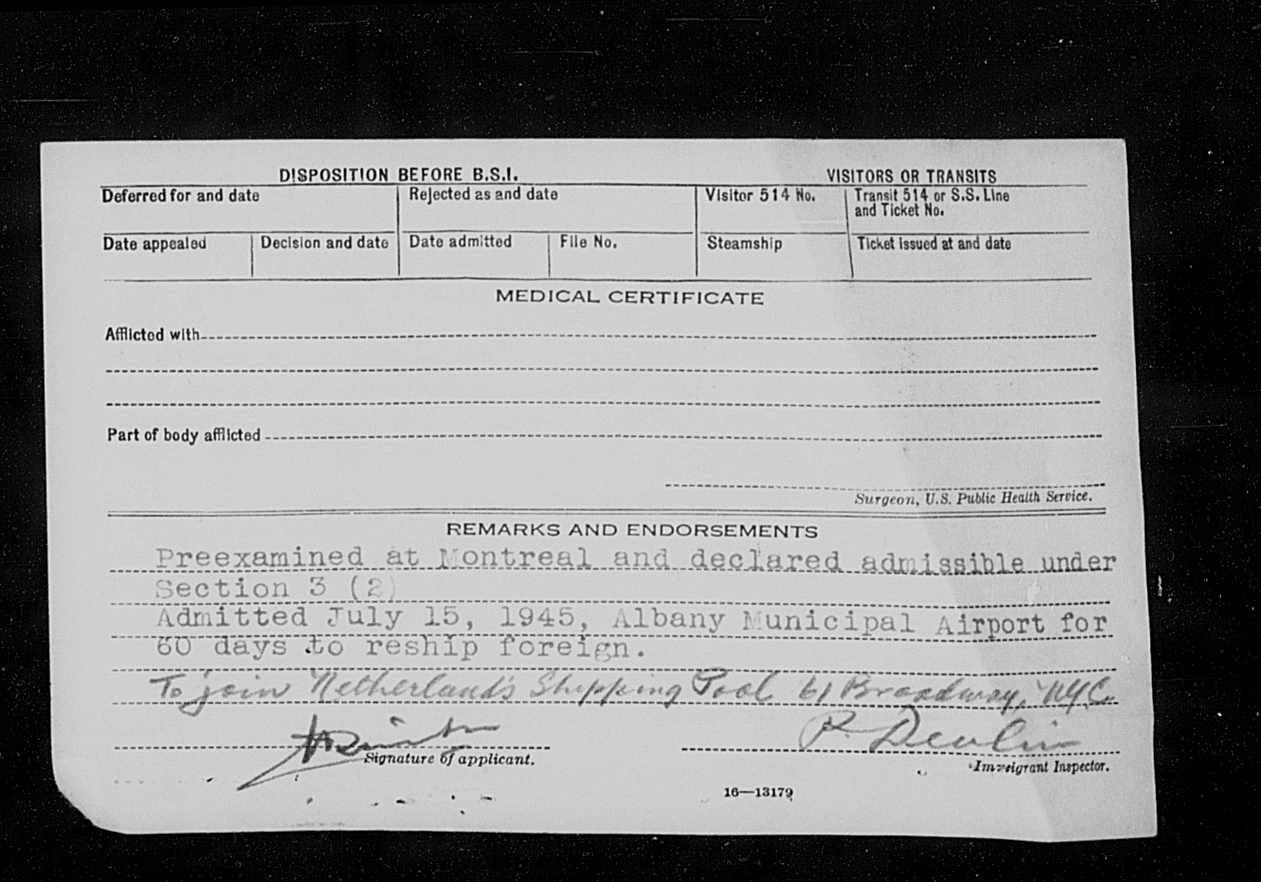 DISPOSITION BEFORE B.S.I.
VISITORS OR TRANSITS
Deferred for and date
Rejected as and date
Visitor 514 No.
Transit 514 or S.S. Line
and Ticket No.
Date appealed
Decision and date
Date admitted
File No.
Steamship
Ticket issued at and date
MEDICAL CERTIFICATE
Afflicted with
Part of body afflicted
Surgeon, U.S. Public Health Service.
REMARKS AND ENDORSEMENTS
Preexamined at Montreal and declared admissible under
Section 3 (2)
Admitted July 15, 1945, Albany Municipal Airport for
60 days to reship foreign.
To join Netherlands Shipping Pool 61 Broadway, NYC.
P Devlin
Signature of applicant.
Immigrant Inspector.
16—13179